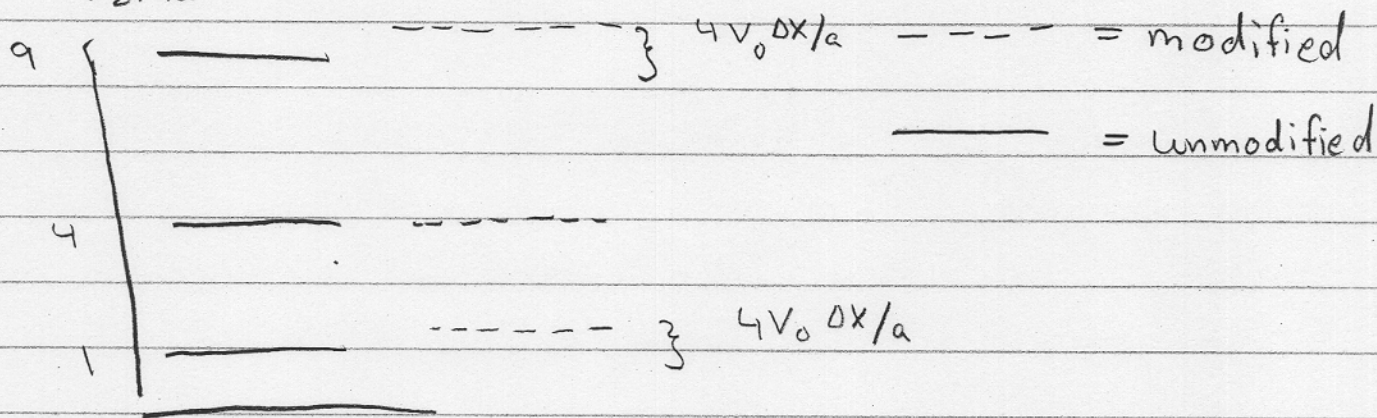 9 } 4V₀ ΔX/a ---- = modified
—— = unmodified
4
} 4V₀ ΔX/a
1